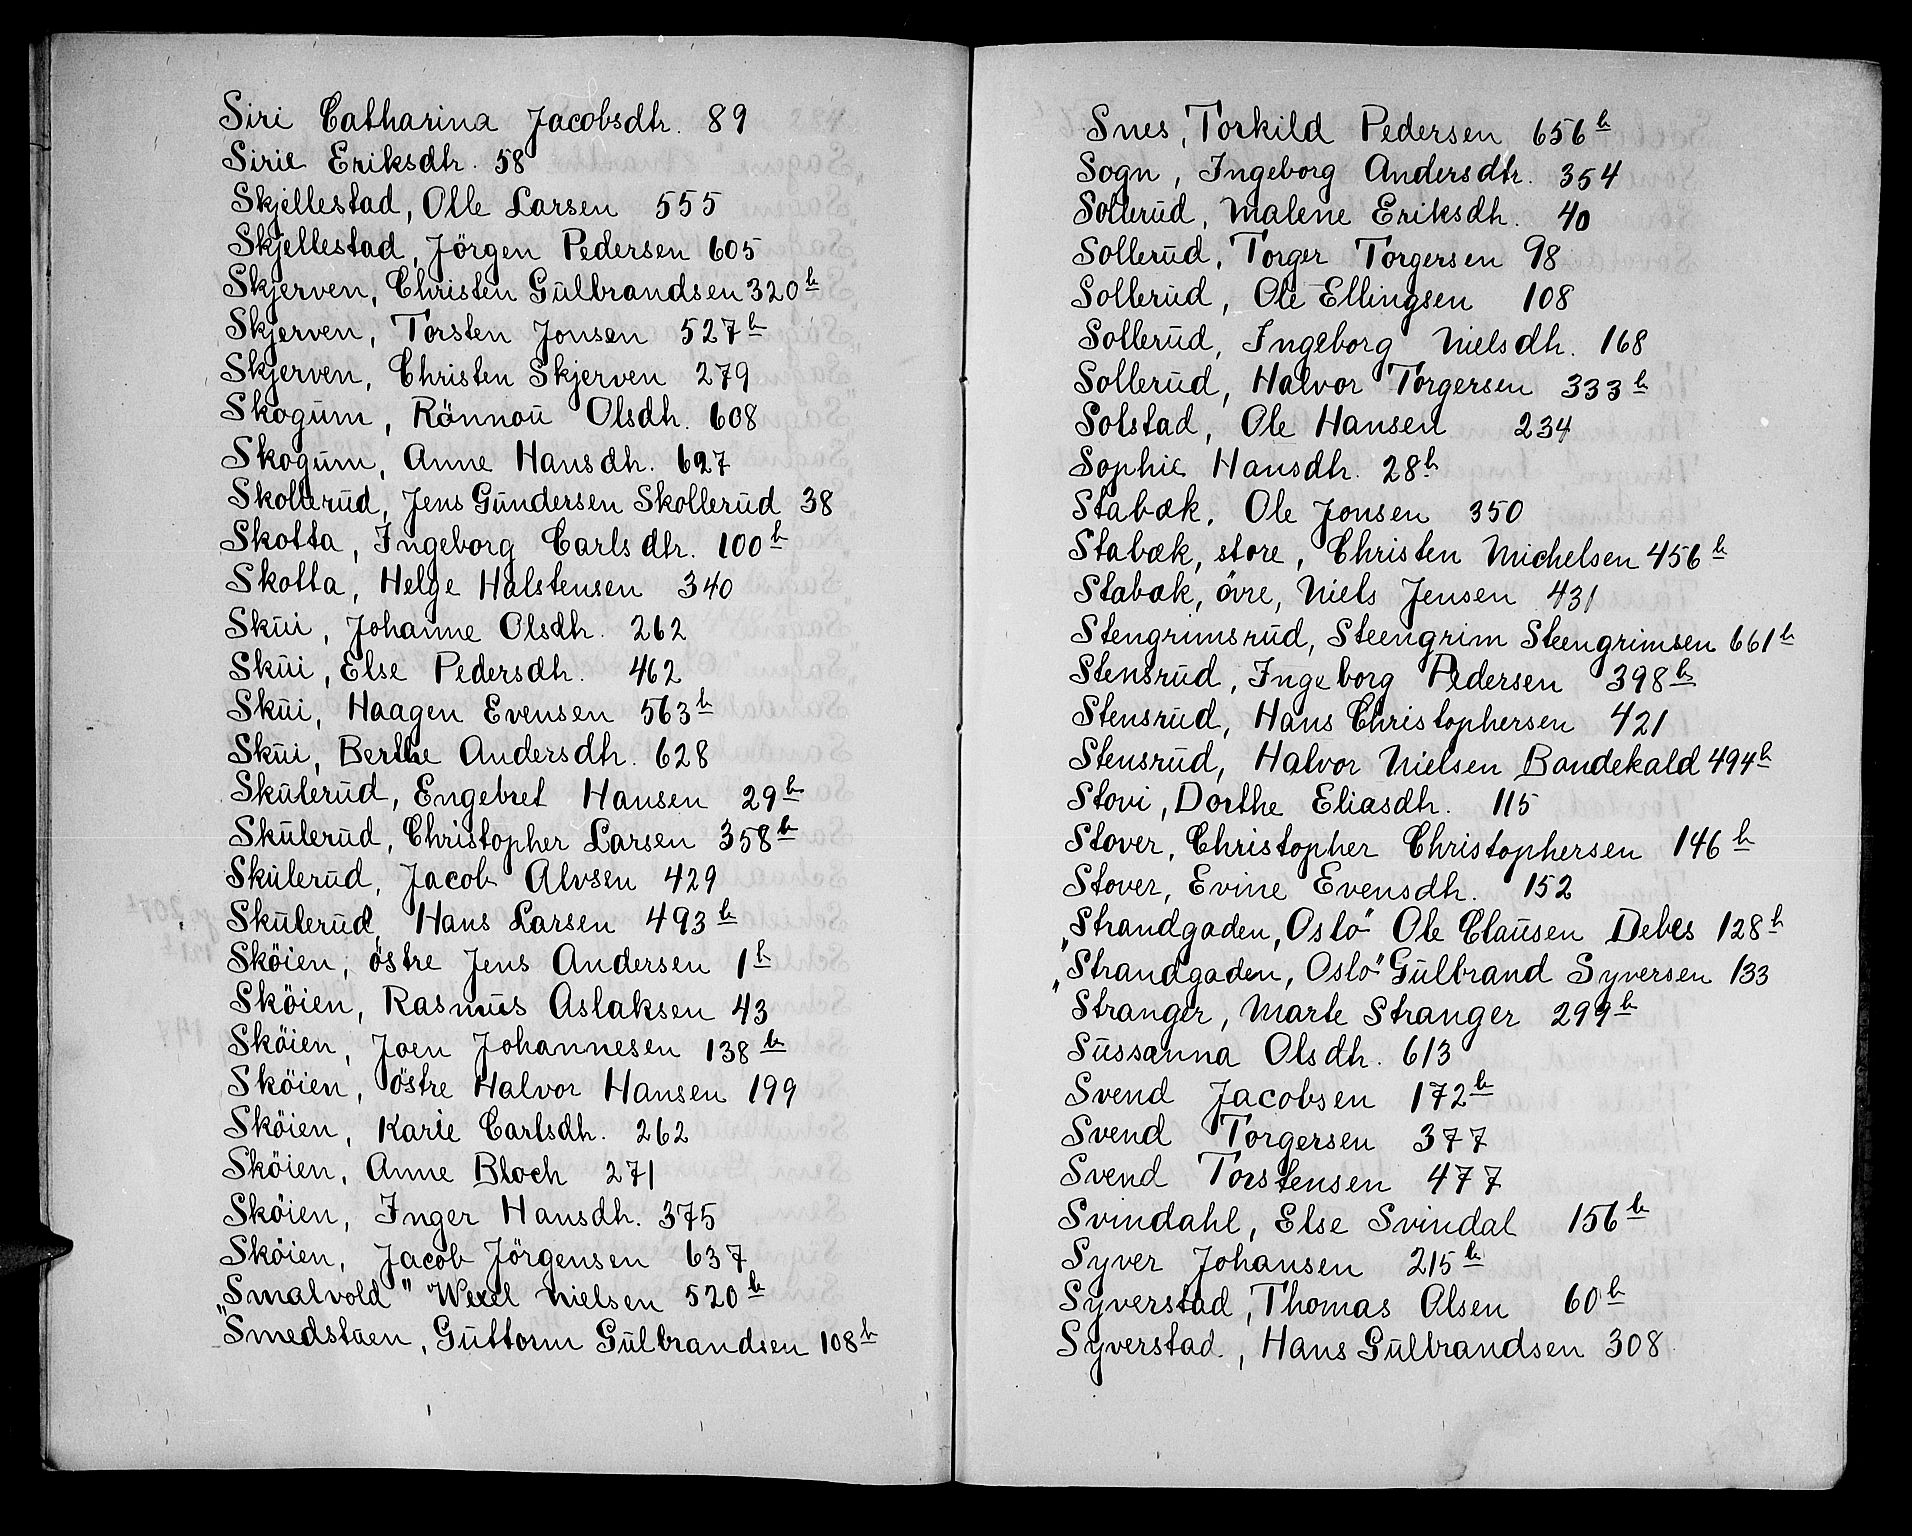 Siri Catharina Jacobsdtr. 89
Sirie Eriksdtr. 58
Skjellestad, Olle Larsen 555
Skjellestad, Jörgen Pedersen 605
Skjerven, Christen Gulbrandsen 320b
Skjerven, Torsten Jonsen 527b
Skjerven, Christen Skjerven 279
Skogum, Rönnou Olsdtr. 608
Skogum, Anne Hansdtr. 627
Skollerud, Jens Gundersen Skollerud 38
Skotta, Ingeborg Carlsdtr. 100b
Skotta, Helge Halstensen 340
Skui, Johanne Olsdtr. 262
Skui, Else Pedersdtr. 462
Skui, Haagen Evensen 563b
Skui, Berthe Andersdtr. 628
Skulerud, Engebret Hansen 29b
Skulerud, Christopher Larsen 358b
Skulerud, Jacob Alvsen 429
Skulerud, Hans Larsen 493b
Sköien, östre Jens Andersen 1b
Sköien, Rasmus Aslaksen 43
Sköien, Joen Johannesen 138b
Sköien, östre Halvor Hansen 199
Sköien, Karie Carlsdtr. 262
Sköien, Anne Bloch 271
Sköien, Inger Hansdtr. 375
Sköien, Jacob Jörgensen 637
„Smalvold" Wexel Nielsen 520b
Smedstuen, Guttorm Gulbrandsen 108b
Snes, Torkild Pedersen 656b
Sogn, Ingeborg Andersdtr. 354
Sollerud, Malene Eriksdtr. 40
Sollerud, Torger Torgersen 98
Sollerud, Ole Ellingsen 108
Sollerud, Ingeborg Nielsdtr. 168
Sollerud, Halvor Torgersen 333b
Solstad, Ole Hansen 234
Sophie Hansdtr. 28b
Stabæk, Ole Jonsen 350
Stabæk, store, Christen Michelsen 456b
Stabæk, övre, Niels Jensen 431
Stengrimsrud, Steengrim Steengrimsen 661b
Stensrud, Ingeborg Pedersen 398b
Stensrud, Hans Christophersen 421
Stensrud, Halvor Nielsen Bandekald 494b
Stovi, Dorthe Eliasdtr. 115
Stover, Christopher Christophersen 146b
Stover, Evine Evensdtr. 152
„Strandgaden, Oslo" Ole Clausen Debes 128b
„Strandgaden, Oslo" Gulbrand Syversen 133
Stranger, Marte Stranger 299b
Sussanna Olsdtr. 613
Svend Jacobsen 172b
Svend Torgersen 377
Svend Torstensen 477
Svindahl, Else Svindal 156b
Syver Johansen 215b
Syverstad, Thomas Olsen 60b
Syverstad, Hans Gulbrandsen 308